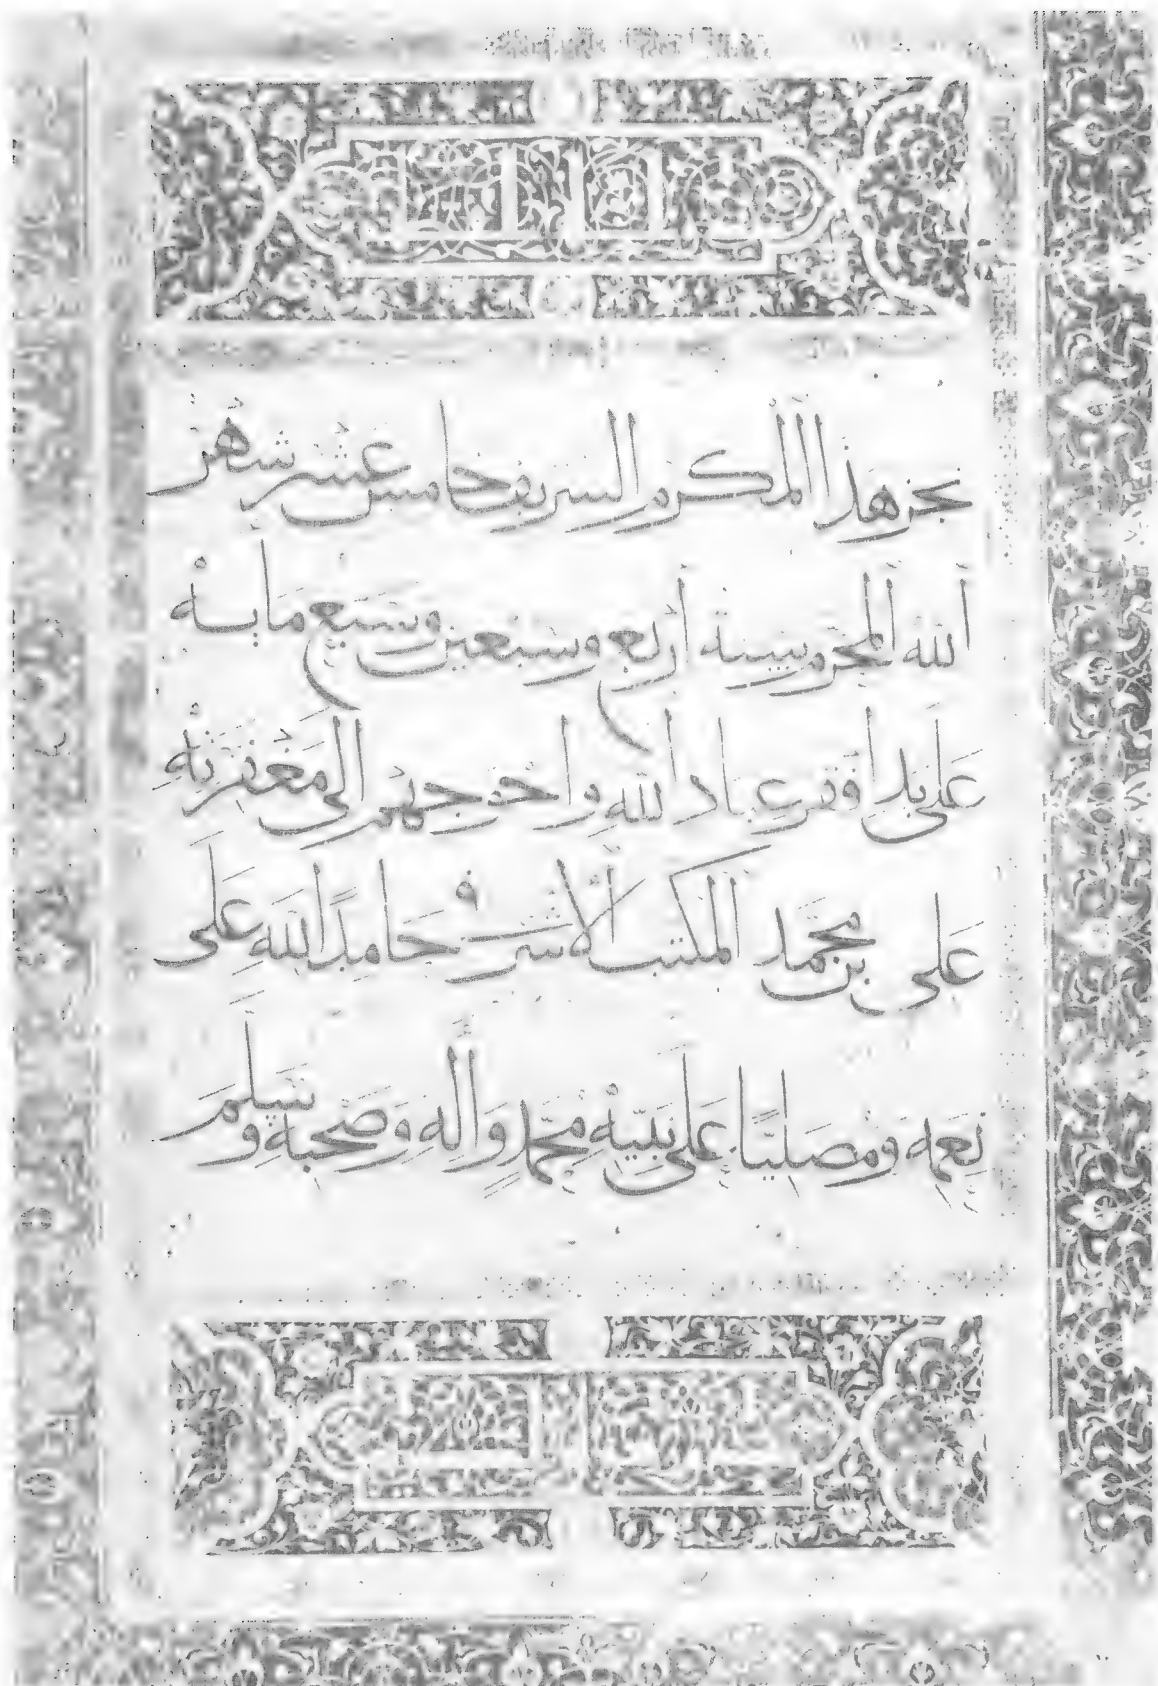 نجز هذا المكرم الشريف خامس عشر شهر
الله المحرم سنة أربع وسبعين وسبع ماية
على يد أفقر عباد الله واحوجهم إلى مغفرته
على بن محمد المكتب الأشرفي حامدًا لله على
نعمه ومصليًا على نبيه محمد وآله وصحبه وسلم